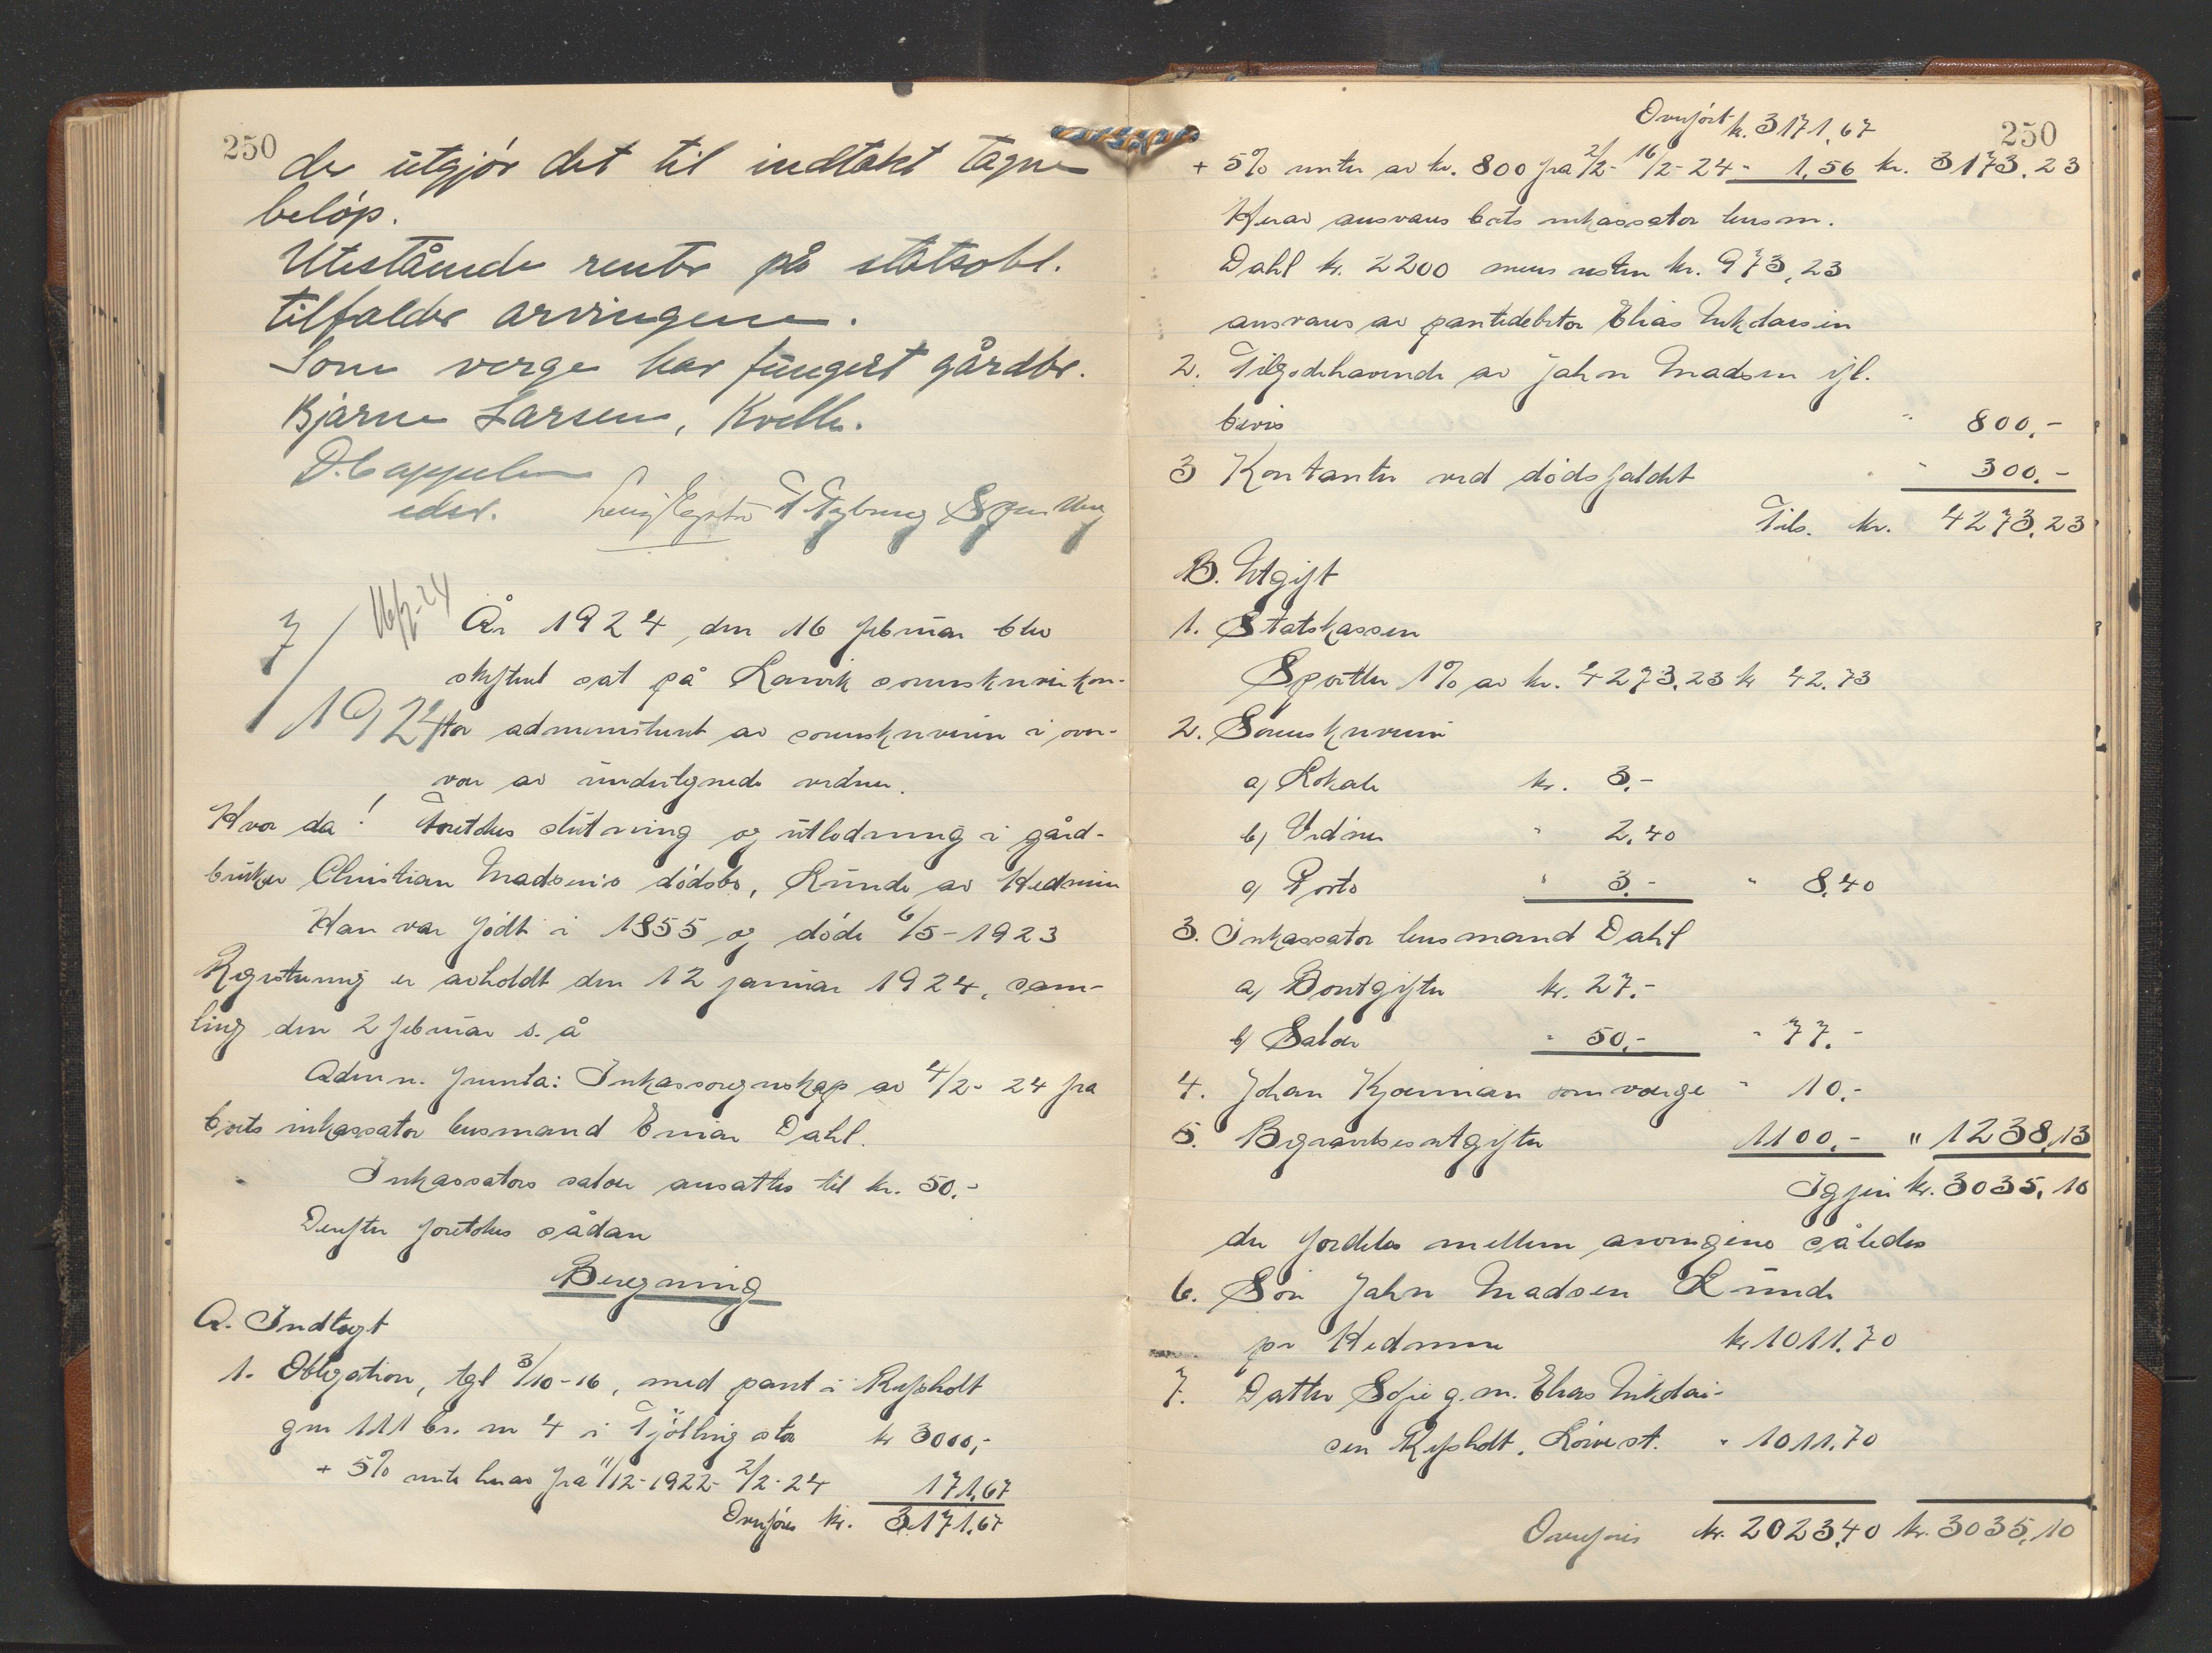 250
der utgjør det til indtækt tagne
beløp.
Utestående renter på statsobl.
tilfalder arvingene.
Som verge har fungert gårdbr.
Bjarne Larsen, Kvelle.
D. Cappelen
edsv.
7/1924
16/2-24
År 1924, den 16 februar blev
skifteret sat på Larvik sorenskriverkon-
tor administrert av sorenskriveren i over-
vær av undertegnede vidner.
Hvor da! Foretokes slutning og utlodning i gård-
bruker Christian Madsens dødsbo, Lunde av Hedrum
Han var født i 1855 og døde 6/5-1923
Registrering er avholdt den 12 januar 1924, sam-
ling den 2 februar s. å
Adm. fremla: Inkassoregnskap av 4/2-24 fra
boets inkassator lensmand Einar Dahl.
Inkassators salær ansattes til kr. 50.-
Derefter foretokes sådan
Beregning
A. Indtægt
1. Obligation, tgl 3/10-16, med pant i Rysholt
gnr 111 br. nr 4 i Tjølling stor kr 3000,-
+ 5% rente herav fra 11/12-1922- 2/2-24 171,67
Overføres kr. 3171.67
250
Overført kr. 3171,67
+ 5% renter av kr. 800 fra 2/2- 16/2-24 - 1,56 kr. 3173.23
Herav ansvares boets inkassator lensm.
Dahl kr. 2200 mens resten kr. 973,23
ansvares av pantedebitor Elias Nikolaisen
2. Tilgodehavende av Jahn Madsen ifl.
bevis " 800.-
3 Kontanter ved dødsfaldet " 300.-
Tils. kr. 4273.23
B. Utgift
1. Statskassen
Sportler 1% av kr. 4273.23 kr 42.73
2. Sorenskriveren
a) Lokale kr. 3.-
b) Vidner " 2,40
c) Porto " 3.- " 8.40
3. Inkassator lensmand Dahl
a) Boutgifter kr. 27.-
b) Salær " 50.- " 77.-
4. Johan som værge " 10.-
5. Begravelsesutgifter 1100.- " 1238,13
Igjen kr. 3035,10
der fordeles mellem arvingene således
6. Søn Jahn Madsen Lunde
pr Hedrum kr 1011.70
7. Datter Sofie g.m. Elias Nikolai-
sen Rysholt, st. " 1011.70
Overføres kr. 2023,40 kr. 3035,10